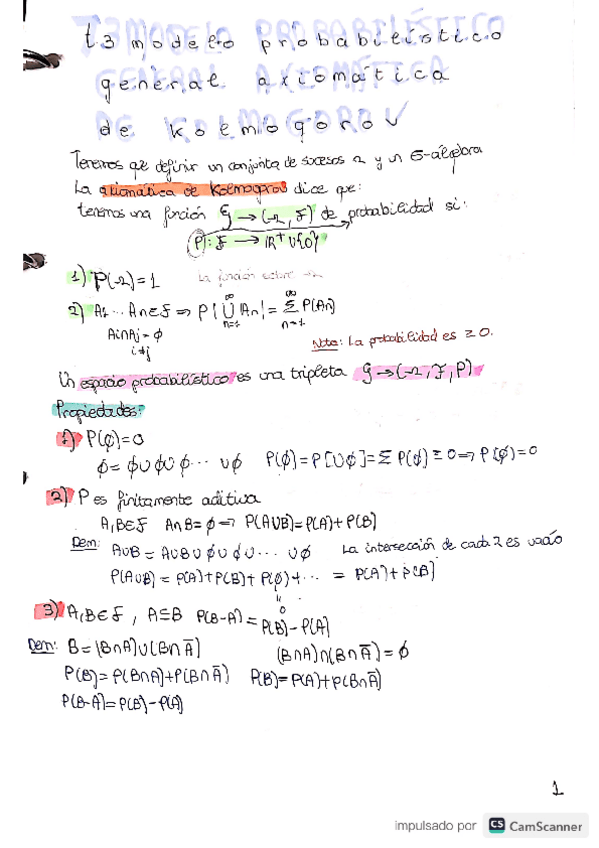 t.3 modelo probabilístico
general axiomática
de Kolmogorov
Tenemos que definir un conjunto de sucesos Ω y un σ-álgebra
La axiomática de Kolmogros dice que:
tenemos una función G → (Ω, F) de probabilidad si:
P: F → ℝ⁺ ∪ {0}
1) P(Ω) = 1 La función sobre Ω
2) A1 ... An ∈ F ⇒ P[⋃ₙ₌₁^∞ An] = Σₙ₌₁^∞ P(An)
Ai∩Aj = ∅
i≠j
Nota: La probabilidad es ≥ 0.
Un espacio probabilístico es una tripleta G → (Ω, F, P)
Propiedades:
1) P(∅) = 0
∅ = ∅∪∅∪∅ ... ∪∅ P(∅) = P[∪∅] = Σ P(∅) = 0 ⇒ P(∅) = 0
2) P es finitamente aditiva
A,B∈F A∩B = ∅ ⇒ P(A∪B) = P(A) + P(B)
Dem: A∪B = A∪B∪∅∪∅∪ ... ∪∅ La intersección de cada 2 es vacío
P(A∪B) = P(A) + P(B) + P(∅) + ... = P(A) + P(B)
" 0
3) A,B∈F, A⊆B P(B-A) = P(B) - P(A)
Dem: B = (B∩A)∪(B∩Ā) (B∩A)∩(B∩Ā) = ∅
P(B) = P(B∩A) + P(B∩Ā) P(B) = P(A) + P(B∩Ā)
P(B-A) = P(B) - P(A)
1
impulsado por CS CamScanner